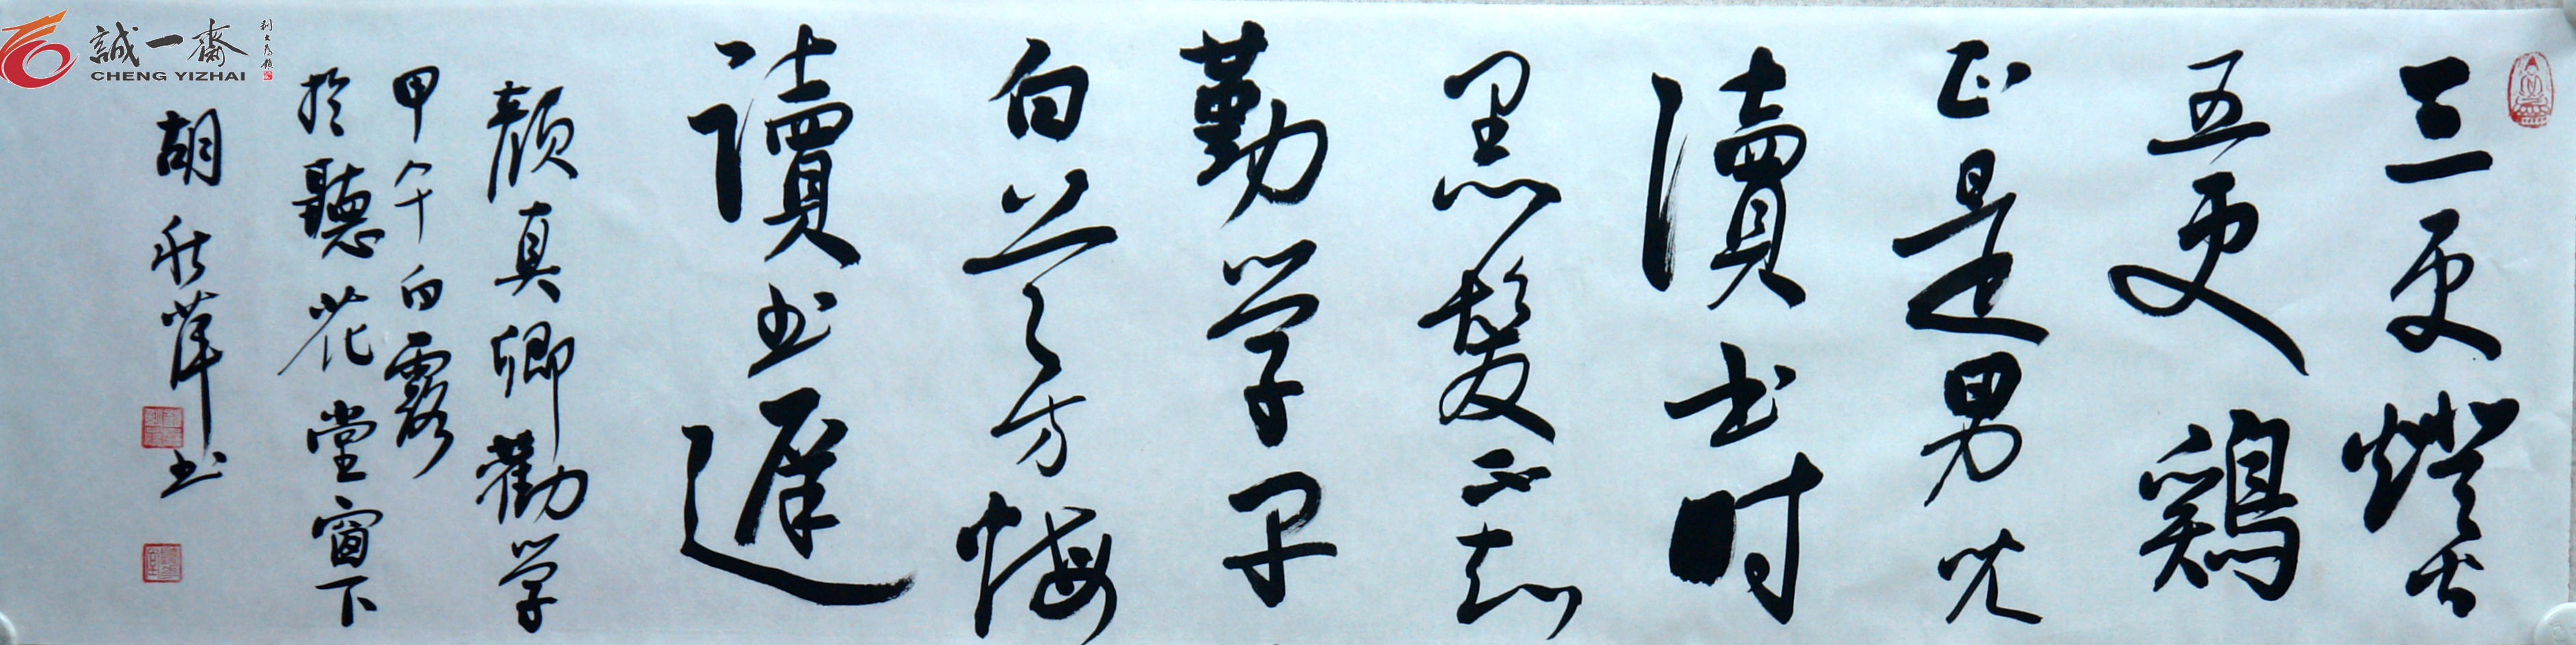 三更燈火
五更鷄
正是男兒
讀书时
黑髮不知
勤学早
白首方悔
讀书遲
颜真卿勸学
甲午白露
於聽花堂窗下
胡秋萍书
誠一齋
CHENG YIZHAI